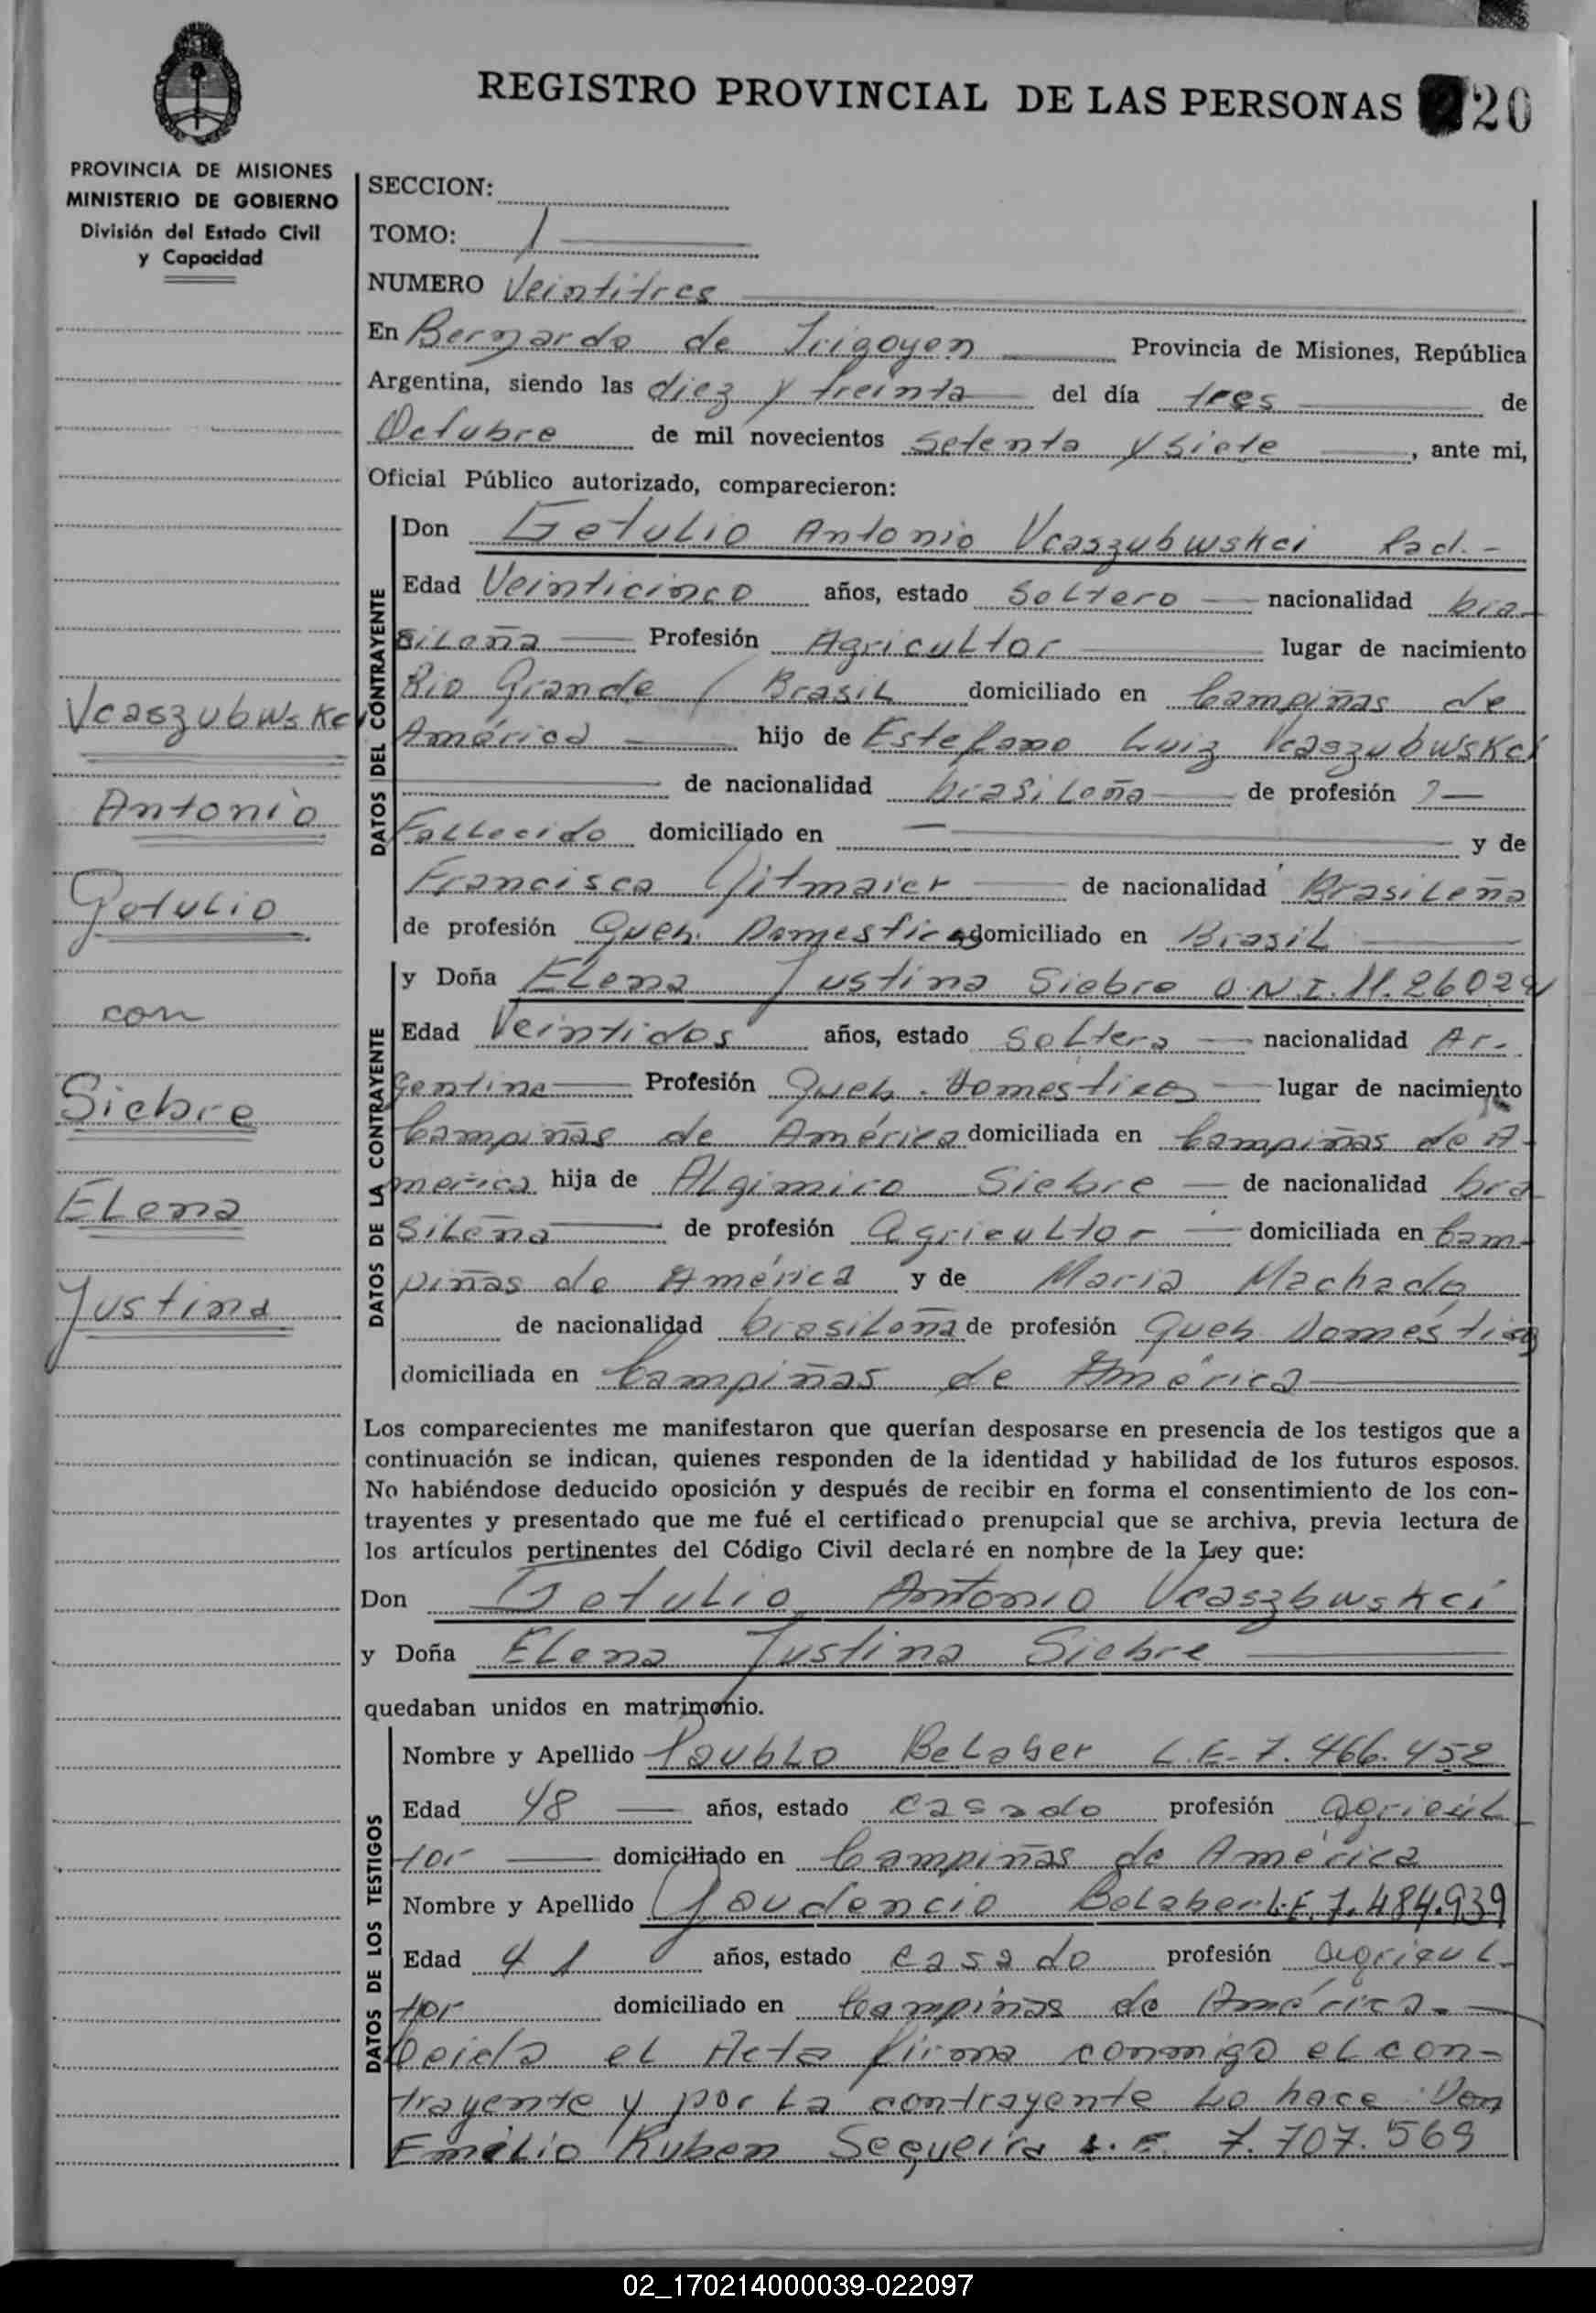 REGISTRO PROVINCIAL DE LAS PERSONAS 20
PROVINCIA DE MISIONES
MINISTERIO DE GOBIERNO
División del Estado Civil
y Capacidad
Vcaszubwskci
Antonio
Getulio
con
Siebre
Elena
Justina
SECCION:
TOMO: 1
NUMERO Veintitres
En Bernardo de Irigoyen Provincia de Misiones, República
Argentina, siendo las diez y treinta del día tres de
Octubre de mil novecientos setenta y siete, ante mi,
Oficial Público autorizado, comparecieron:
DATOS DEL CONTRAYENTE
Don Getulio Antonio Vcaszubwskci
Edad Veinticinco años, estado Soltero nacionalidad bra-
sileña Profesión Agricultor lugar de nacimiento
Rio Grande / Brasil domiciliado en Campiñas de
América hijo de Estefano Luiz Vcaszubwskci
de nacionalidad brasileña de profesión ?—
Fallecido domiciliado en — y de
Francisca de nacionalidad Brasileña
de profesión Queh. Domesticos domiciliado en Brasil
DATOS DE LA CONTRAYENTE
y Doña Elena Justina Siebre D.N.I. 11.26029
Edad Veintidos años, estado Soltera nacionalidad Ar-
gentina Profesión Queh. Domesticos lugar de nacimiento
Campiñas de América domiciliada en Campiñas de A-
merica hija de Algimiro Siebre de nacionalidad bra
sileña de profesión Agricultor domiciliada en Cam-
piñas de América y de Maria Machado
de nacionalidad brasileña de profesión Queh Domésticos
domiciliada en Campiñas de América
Los comparecientes me manifestaron que querían desposarse en presencia de los testigos que a
continuación se indican, quienes responden de la identidad y habilidad de los futuros esposos.
No habiéndose deducido oposición y después de recibir en forma el consentimiento de los con-
trayentes y presentado que me fué el certificado prenupcial que se archiva, previa lectura de
los artículos pertinentes del Código Civil declaré en nombre de la Ley que:
Don Getulio Antonio Vcaszbwskci
y Doña Elena Justina Siebre
quedaban unidos en matrimonio.
DATOS DE LOS TESTIGOS
Nombre y Apellido Paublo Belaber L.E. 7.466.452
Edad 48 años, estado casado profesión agricul
tor domiciliado en Campiñas de América
Nombre y Apellido Gaudencio Belaber L.E. 7.484.939
Edad 41 años, estado casado profesión agricul-
tor domiciliado en Campiñas de América.
Leida el Acta firma conmigo el con-
trayente y por la contrayente lo hace Don
Emilio Ruben Sequeira L.E. 7.707.569
02_170214000039-022097